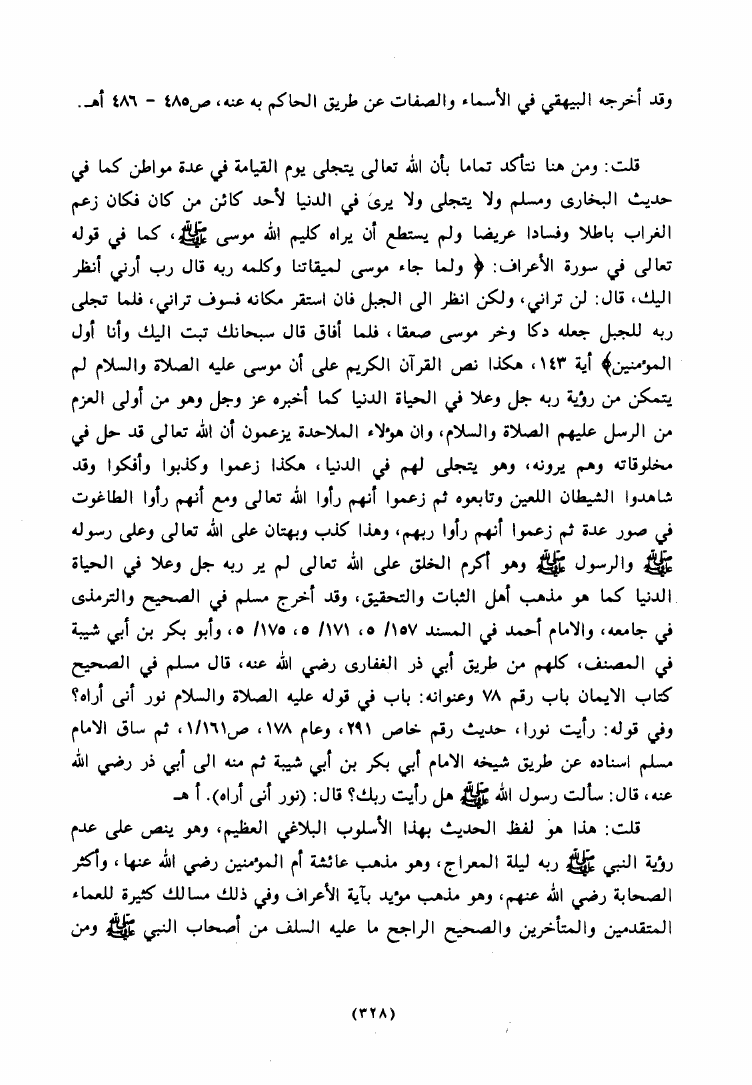 وقد أخرجه البيهقي في الأسماء والصفات عن طريق الحاكم به عنه، ص٤٨٥ - ٤٨٦ أهـ.
قلت: ومن هنا نتأكد تماما بأن الله تعالى يتجلى يوم القيامة في عدة مواطن كما في
حديث البخارى ومسلم ولا يتجلى ولا يرى في الدنيا لأحد كائن من كان فكان زعم
الغراب باطلا وفسادا عريضا ولم يستطع أن يراه كليم الله موسى ﷺ، كما في قوله
تعالى في سورة الأعراف: ﴿ ولما جاء موسى لميقاتنا وكلمه ربه قال رب أرني أنظر
اليك، قال: لن تراني، ولكن انظر الى الجبل فان استقر مكانه فسوف تراني، فلما تجلى
ربه للجبل جعله دكا وخر موسى صعقا، فلما أفاق قال سبحانك تبت اليك وأنا أول
المؤمنين﴾ أية ١٤٣، هكذا نص القرآن الكريم على أن موسى عليه الصلاة والسلام لم
يتمكن من رؤية ربه جل وعلا في الحياة الدنيا كما أخبره عز وجل وهو من أولى العزم
من الرسل عليهم الصلاة والسلام، وان هؤلاء الملاحدة يزعمون أن الله تعالى قد حل في
مخلوقاته وهم يرونه، وهو يتجلى لهم في الدنيا، هكذا زعموا وكذبوا وأفكوا وقد
شاهدوا الشيطان اللعين وتابعوه ثم زعموا أنهم رأوا الله تعالى ومع أنهم رأوا الطاغوت
في صور عدة ثم زعموا أنهم رأوا ربهم، وهذا كذب وبهتان على الله تعالى وعلى رسوله
ﷺ والرسول ﷺ وهو أكرم الخلق على الله تعالى لم ير ربه جل وعلا في الحياة
الدنيا كما هو مذهب أهل الثبات والتحقيق، وقد أخرج مسلم في الصحيح والترمذى
في جامعه، والامام أحمد في المسند ١٥٧/ ٥، ١٧١/ ٥، ١٧٥/ ٥، وأبو بكر بن أبي شيبة
في المصنف، كلهم من طريق أبي ذر الغفارى رضي الله عنه، قال مسلم في الصحيح
كتاب الايمان باب رقم ٧٨ وعنوانه: باب في قوله عليه الصلاة والسلام نور أنى أراه؟
وفي قوله: رأيت نورا، حديث رقم خاص ٢٩١، وعام ١٧٨، ص١/١٦١، ثم ساق الامام
مسلم اسناده عن طريق شيخه الامام أبي بكر بن أبي شيبة ثم منه الى أبي ذر رضي الله
عنه، قال: سألت رسول الله ﷺ هل رأيت ربك؟ قال: (نور أنى أراه). أ هـ
قلت: هذا هو لفظ الحديث بهذا الأسلوب البلاغي العظيم، وهو ينص على عدم
رؤية النبي ﷺ ربه ليلة المعراج، وهو مذهب عائشة أم المؤمنين رضي الله عنها، وأكثر
الصحابة رضي الله عنهم، وهو مذهب مؤيد بآية الأعراف وفي ذلك مسالك كثيرة للعماء
المتقدمين والمتأخرين والصحيح الراجح ما عليه السلف من أصحاب النبي ﷺ ومن
(٣٢٨)